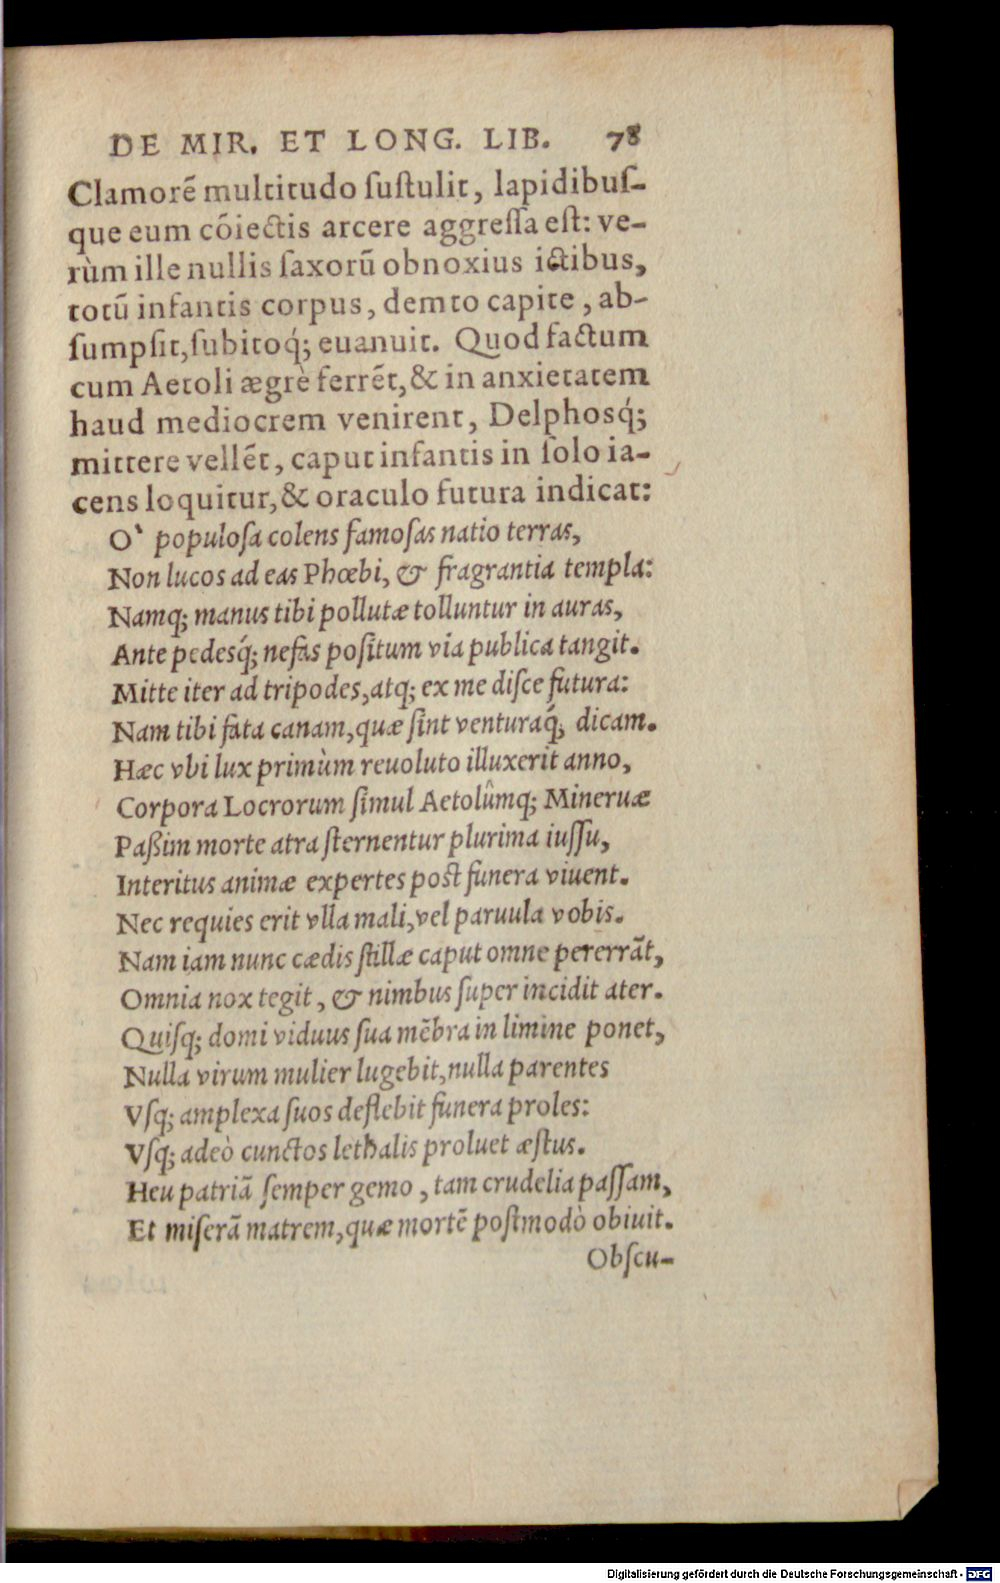 DE MIR. ET LONG. LIB. 78
Clamorē multitudo ſuſtulit, lapidibuſ-
que eum cōiectis arcere aggreſſa eſt: ve-
rùm ille nullis ſaxorū obnoxius ictibus,
totū infantis corpus, demto capite, ab-
ſumpſit, ſubitoq́; euanuit. Quod factum
cum Aetoli ægrè ferrēt, & in anxietatem
haud mediocrem venirent, Delphosq́;
mittere vellēt, caput infantis in ſolo ia-
cens loquitur, & oraculo futura indicat:
O` populoſa colens famoſas natio terras,
Non lucos ad eas Phœbi, & fragrantia templa:
Namq; manus tibi pollutæ tolluntur in auras,
Ante pedesq́; nefas poſitum via publica tangit.
Mitte iter ad tripodes, atq; ex me diſce futura:
Nam tibi fata canam, quæ ſint venturaq́; dicam.
Hæc vbi lux primùm reuoluto illuxerit anno,
Corpora Locrorum ſimul Aetolûmq; Mineruæ
Paßim morte atra ſternentur plurima iuſſu,
Interitus animæ expertes poſt funera viuent.
Nec requies erit vlla mali, vel paruula vobis.
Nam iam nunc cædis ſtillæ caput omne pererrāt,
Omnia nox tegit, & nimbus ſuper incidit ater.
Quiſq; domi viduus ſua mēbra in limine ponet,
Nulla virum mulier lugebit, nulla parentes
Vſq; amplexa ſuos deflebit funera proles:
Vſq; adeò cunctos lethalis proluet æſtus.
Heu patriā ſemper gemo, tam crudelia paſſam,
Et miſerā matrem, quæ mortē poſtmodò obiuit.
Obſcu-
Digitalisierung gefördert durch die Deutsche Forschungsgemeinschaft - DFG